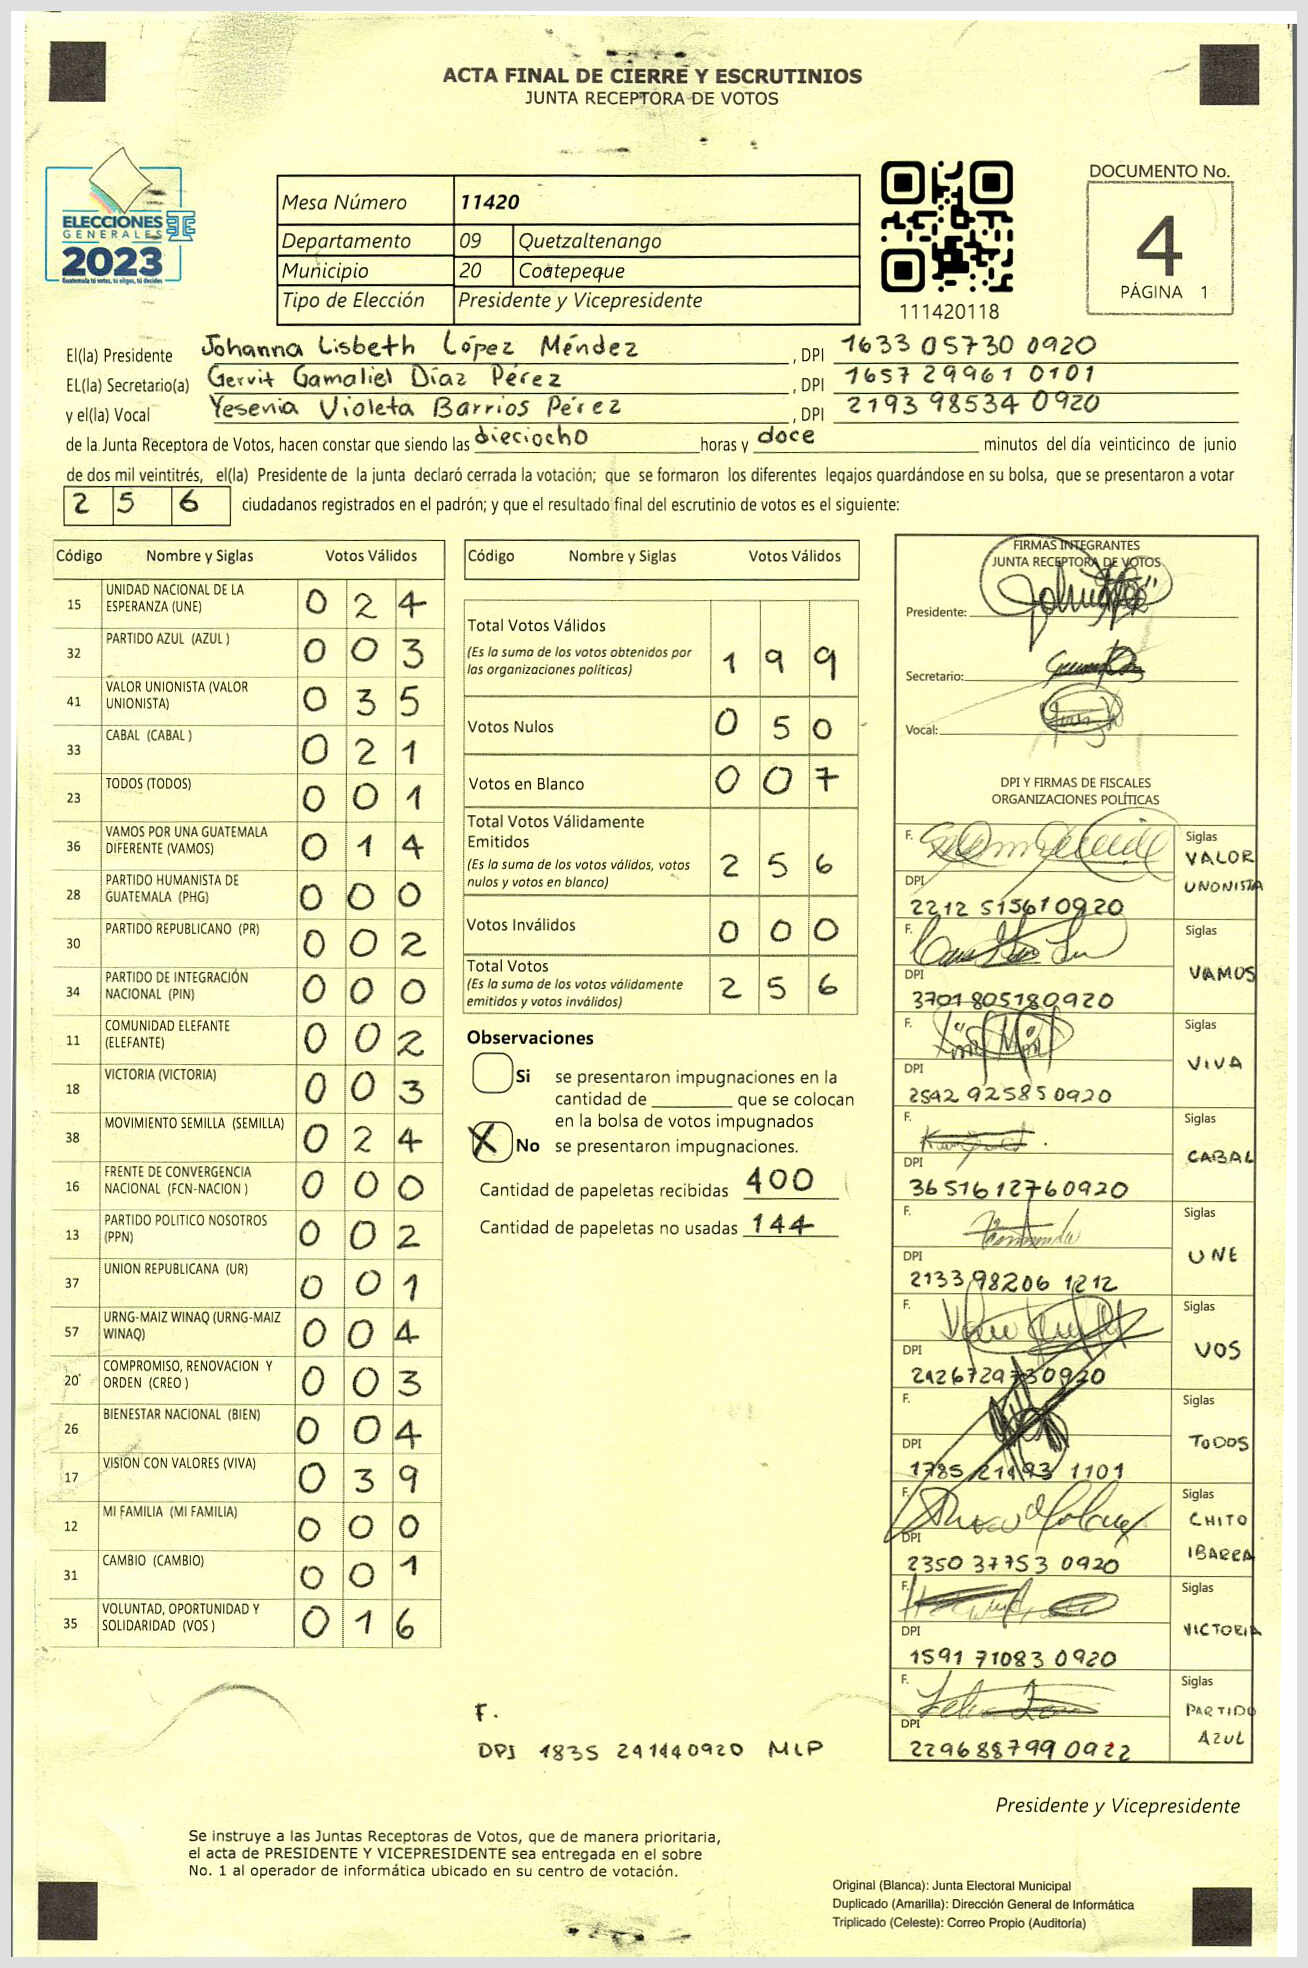 ACTA FINAL DE CIERRE Y ESCRUTINIOS
JUNTA RECEPTORA DE VOTOS
ELECCIONES
GENERALES
2023
Guatemala tú votas, tú eliges, tú decides
Mesa Número 11420
Departamento 09 Quetzaltenango
Municipio 20 Coatepeque
Tipo de Elección Presidente y Vicepresidente
111420118
DOCUMENTO No.
4
PÁGINA 1
El(la) Presidente Johanna Lisbeth López Méndez, DPI 1633 05730 0920
EL(la) Secretario(a) Gervit Gamaliel Díaz Pérez, DPI 1657 29961 0101
y el(la) Vocal Yesenia Violeta Barrios Pérez, DPI 2193 98534 0920
de la Junta Receptora de Votos, hacen constar que siendo las dieciocho horas y doce minutos del día veinticinco de junio
de dos mil veintitrés, el(la) Presidente de la junta declaró cerrada la votación; que se formaron los diferentes legajos guardándose en su bolsa, que se presentaron a votar
2 5 6 ciudadanos registrados en el padrón; y que el resultado final del escrutinio de votos es el siguiente:
Código Nombre y Siglas Votos Válidos
15 UNIDAD NACIONAL DE LA ESPERANZA (UNE) 0 2 4
32 PARTIDO AZUL (AZUL ) 0 0 3
41 VALOR UNIONISTA (VALOR UNIONISTA) 0 3 5
33 CABAL (CABAL ) 0 2 1
23 TODOS (TODOS) 0 0 1
36 VAMOS POR UNA GUATEMALA DIFERENTE (VAMOS) 0 1 4
28 PARTIDO HUMANISTA DE GUATEMALA (PHG) 0 0 0
30 PARTIDO REPUBLICANO (PR) 0 0 2
34 PARTIDO DE INTEGRACIÓN NACIONAL (PIN) 0 0 0
11 COMUNIDAD ELEFANTE (ELEFANTE) 0 0 2
18 VICTORIA (VICTORIA) 0 0 3
38 MOVIMIENTO SEMILLA (SEMILLA) 0 2 4
16 FRENTE DE CONVERGENCIA NACIONAL (FCN-NACION ) 0 0 0
13 PARTIDO POLITICO NOSOTROS (PPN) 0 0 2
37 UNION REPUBLICANA (UR) 0 0 1
57 URNG-MAIZ WINAQ (URNG-MAIZ WINAQ) 0 0 4
20 COMPROMISO, RENOVACION Y ORDEN (CREO ) 0 0 3
26 BIENESTAR NACIONAL (BIEN) 0 0 4
17 VISIÓN CON VALORES (VIVA) 0 3 9
12 MI FAMILIA (MI FAMILIA) 0 0 0
31 CAMBIO (CAMBIO) 0 0 1
35 VOLUNTAD, OPORTUNIDAD Y SOLIDARIDAD (VOS ) 0 1 6
Código Nombre y Siglas Votos Válidos
Total Votos Válidos
(Es la suma de los votos obtenidos por
las organizaciones políticas) 1 9 9
Votos Nulos 0 5 0
Votos en Blanco 0 0 7
Total Votos Válidamente
Emitidos
(Es la suma de los votos válidos, votos
nulos y votos en blanco) 2 5 6
Votos Inválidos 0 0 0
Total Votos
(Es la suma de los votos válidamente
emitidos y votos inválidos) 2 5 6
Observaciones
Si se presentaron impugnaciones en la
cantidad de ________ que se colocan
en la bolsa de votos impugnados
X No se presentaron impugnaciones.
Cantidad de papeletas recibidas 400
Cantidad de papeletas no usadas 144
F.
DPI 1835 241440920 MLP
FIRMAS INTEGRANTES
JUNTA RECEPTORA DE VOTOS
Presidente:
Secretario:
Vocal:
DPI Y FIRMAS DE FISCALES
ORGANIZACIONES POLÍTICAS
F. Siglas
VALOR
UNONISTA
DPI
2212 51561 0920
F. Siglas
VAMOS
DPI
3701805180920
F. Siglas
VIVA
DPI
2542 92585 0920
F. Siglas
CABAL
DPI
3651612760920
F. Siglas
UNE
DPI
2133 98206 1212
F. Siglas
VOS
DPI
2126729730920
F. Siglas
TODOS
DPI
1785 21193 1101
F. Siglas
CHITO
IBARRA
DPI
2350 37753 0920
F. Siglas
VICTORIA
DPI
1591 71083 0920
F. Siglas
PARTIDO
AZUL
DPI
2296887990922
Presidente y Vicepresidente
Se instruye a las Juntas Receptoras de Votos, que de manera prioritaria,
el acta de PRESIDENTE Y VICEPRESIDENTE sea entregada en el sobre
No. 1 al operador de informática ubicado en su centro de votación.
Original (Blanca): Junta Electoral Municipal
Duplicado (Amarilla): Dirección General de Informática
Triplicado (Celeste): Correo Propio (Auditoría)